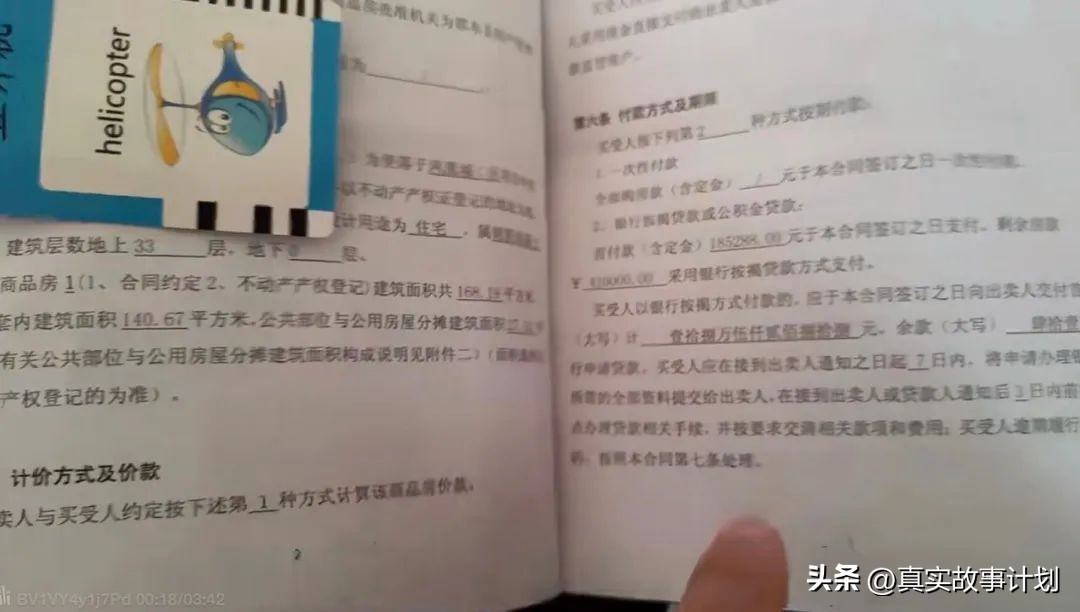 helicopter
为坐落于
以不动产产权证登记的地址为准
计用途为 住宅 ,属
建筑层数地上 33 层,地下 0 层。
商品房 1(1、合同约定 2、不动产产权登记)建筑面积共 168.19 平方米,
套内建筑面积 140.67 平方米,公共部位与公用房屋分摊建筑面积
有关公共部位与公用房屋分摊建筑面积构成说明见附件二)(面积
产权登记的为准)。
计价方式及价款
卖人与买受人约定按下述第 1 种方式计算该商品房价款。
2
第六条 付款方式及期限
买受人按下列第 2 种方式按期付款。
1.一次性付款
全部购房款(含定金) / 元于本合同签订之日一次
2、银行按揭贷款或公积金贷款:
首付款(含定金)185288.00 元于本合同签订之日支付,剩余房款
¥ 410000.00 采用银行按揭贷款方式支付。
买受人以银行按揭方式付款的,应于本合同签订之日向出卖人交付首
(大写)计 壹拾捌万伍仟贰佰捌拾捌 元。余款(大写) 肆拾壹
行申请贷款。买受人应在接到出卖人通知之日起 7 日内,将申请办理银
所需的全部资料提交给出卖人,在接到出卖人或贷款人通知后 3 日内前
点办理贷款相关手续,并按要求交清相关款项和费用;买受人逾期履行
的,按照本合同第七条处理。
BV1VY4y1j7Pd 00:18/03:42
头条 @真实故事计划